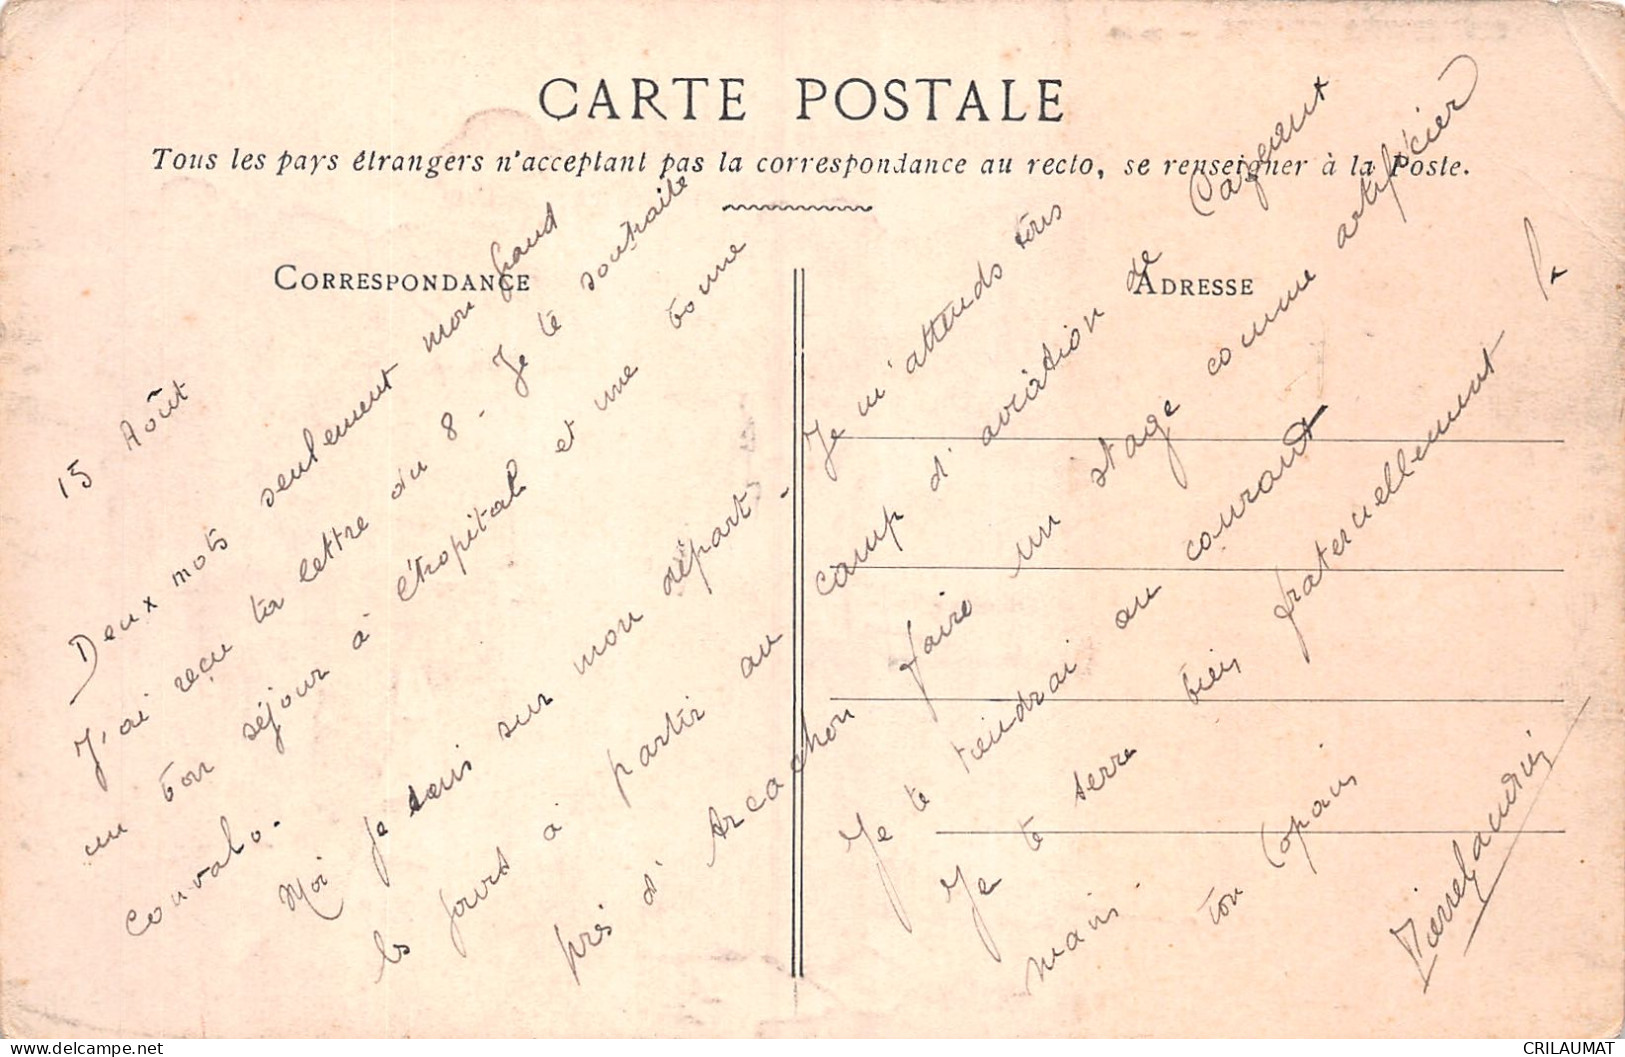 CARTE POSTALE
Tous les pays étrangers n'acceptant pas la correspondance au recto, se renseigner à la Poste.
CORRESPONDANCE
ADRESSE
15 Août
Deux mots seulement mon grand
J'ai reçu ta lettre du 8 - Je te souhaite
un bon séjour à l'hopital et une bonne
convalo.
Moi je suis sur mon départ -
les jours à partir au
près d'Arcachon
Je m'attends tous
camp d'aviation de Cazeaux
faire un stage comme artificier
Je te tiendrai au courant
Je te serre bien fraternellement la
main
ton Copain
Pierre
delcampe.net
CRILAUMAT